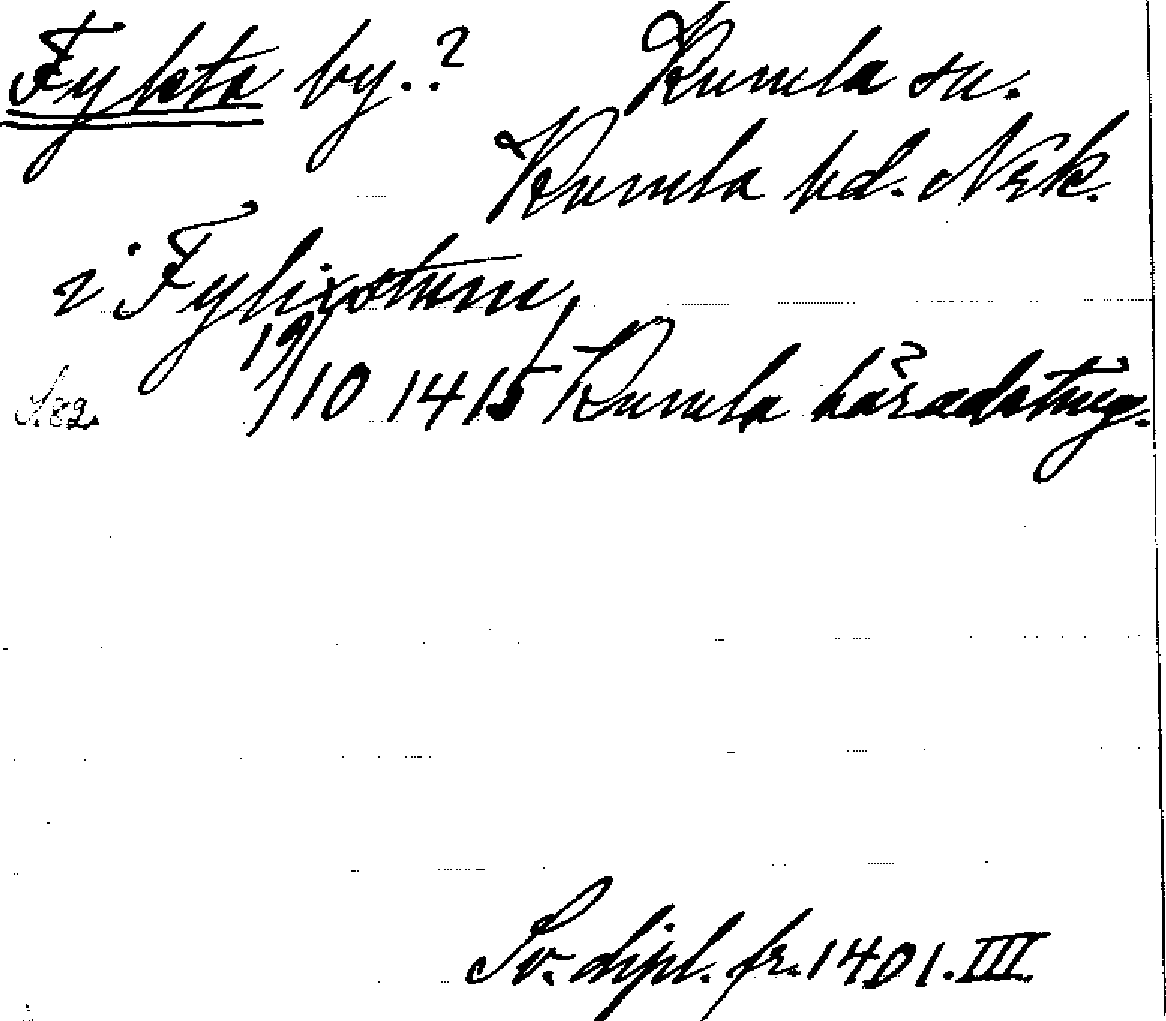 Fylsta by.? Kumla sn.
Kumla hd. Närk.
i Fylixstum,
19/10 1415 Kumla häradsting.
S. 82.
Sv. dipl. fr. 1401. III.